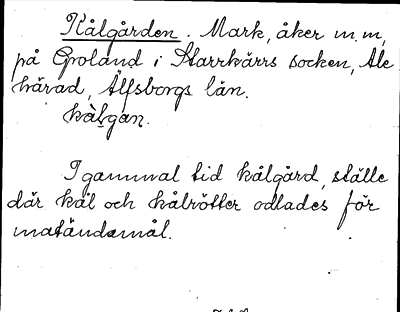 Kålgården. Mark, åker m.m,
på Groland i Starrkärrs socken, Ale
härad, Älfsborgs län.
kålgan.
I gammal tid kålgård, ställe
där kål och kålrötter odlades för
matändamål.